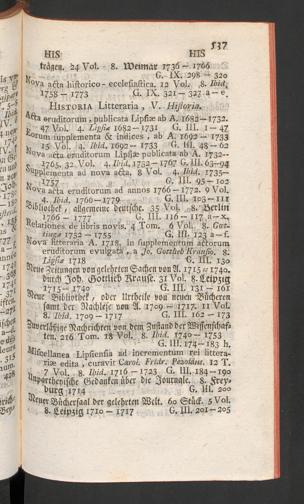 537
HIS HIS
trägen. 24 Vol. 8. Weimar 1736 – 1766
G. IX. 298 – 320
Nova acta historico-ecclesiastica. 12 Vol. 8. Ibid.
1758 – 1773 G. IX. 321 – 327 a – e.
HISTORIA Litteraria, V. Historia.
Acta eruditorum, publicata Lipsiæ ab A. 1682 – 1732.
47 Vol. 4. Lipsiæ 1682 – 1731 G. III. 1 – 47
Eorum supplementa & indices, ab A. 1692 – 1733
15 Vol. 4. Ibid. 1692 – 1733 G. III. 48 – 62
Nova acta eruditorum Lipsiæ publicata ab A. 1732-
1765. 32 Vol. 4. Ibid. 1732 – 1767 G. III. 63-94
Supplementa ad nova acta. 8 Vol. 4. Ibid. 1735–
1757 G. III. 95 – 102
Nova acta eruditorum ad annos 1766 – 1772. 9 Vol.
4. Ibid. 1766 – 1779 G. III. 103 – 111
Bibliothek, allgemeine deutsche. 25 Vol. 8. Berlin
1766 – 1777 G. III. 116 – 117 a – x.
Relationes de libris novis. 4 Tom. 6 Vol. 8. Göt-
tingæ 1752 – 1755 G. III. 123 a – f.
Nova litteraria A. 1718. in supplementum actorum
eruditorum evulgata, a Jo. Gottlieb Krausio. 8.
Lipsiæ 1718 G. III. 130
Neue Zeitungen von gelehrten Sachen von A. 1715 – 1740.
durch Joh. Gottlieb Krause. 31 Vol. 8. Leipzig
1715 – 1740 G. III. 131 – 161
Neue Bibliothek, oder Urtheile von neuen Büchern
samt der Nachlese von A. 1709 – 1717. 11 Vol.
8. Ibid. 1709 – 1717 G. III. 162 – 173
Zuverläßige Nachrichten von dem Zustand der Wissenschaf-
ten. 216 Tom. 18 Vol. 8. Ibid. 1740 – 1753
G. III. 174 – 183 h.
Miscellanea Lipsiensia ad incrementum rei littera-
riæ edita, curavit Carol. Fridr. Pezoldus. 12 T.
7 Vol. 8. Ibid. 1716 – 1723 G. III. 184 – 190
Unpartheyische Gedanken über die Journale. 8. Frey-
burg 1714 G. III. 200
Neuer Büchersaal der gelehrten Welt. 60 Stück. 5 Vol.
8. Leipzig 1710 – 1717 G. III. 201 – 205